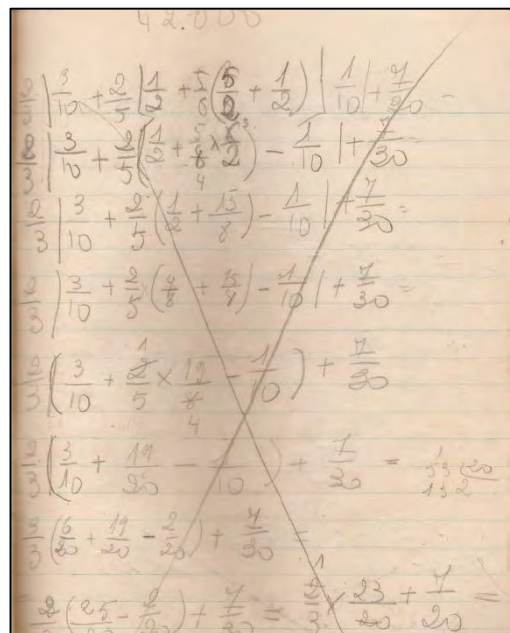 42.000
2/3 | 3/10 + 2/5 | 1/2 + 5/6 ( 5/2 + 1/2 ) | 1/10 | + 7/30 =
2/3 | 3/10 + 2/5 ( 1/2 + 5/8 × 3/2 ) - 1/10 | + 7/30
2/3 | 3/10 + 2/5 ( 1/2 + 15/8 ) - 1/10 | + 7/30 =
2/3 | 3/10 + 2/5 ( 4/8 + 15/8 ) - 1/10 | + 7/30 =
2/3 ( 3/10 + 2/5 × 19/8 - 1/10 ) + 7/30
1 4
2/3 ( 3/10 + 19/20 - 1/10 ) + 7/30 =
2/3 ( 6/20 + 19/20 - 2/20 ) + 7/30 =
= 2/3 ( 25/20 - 2/20 ) + 7/30 = 2/3 × 23/20 + 7/20 =